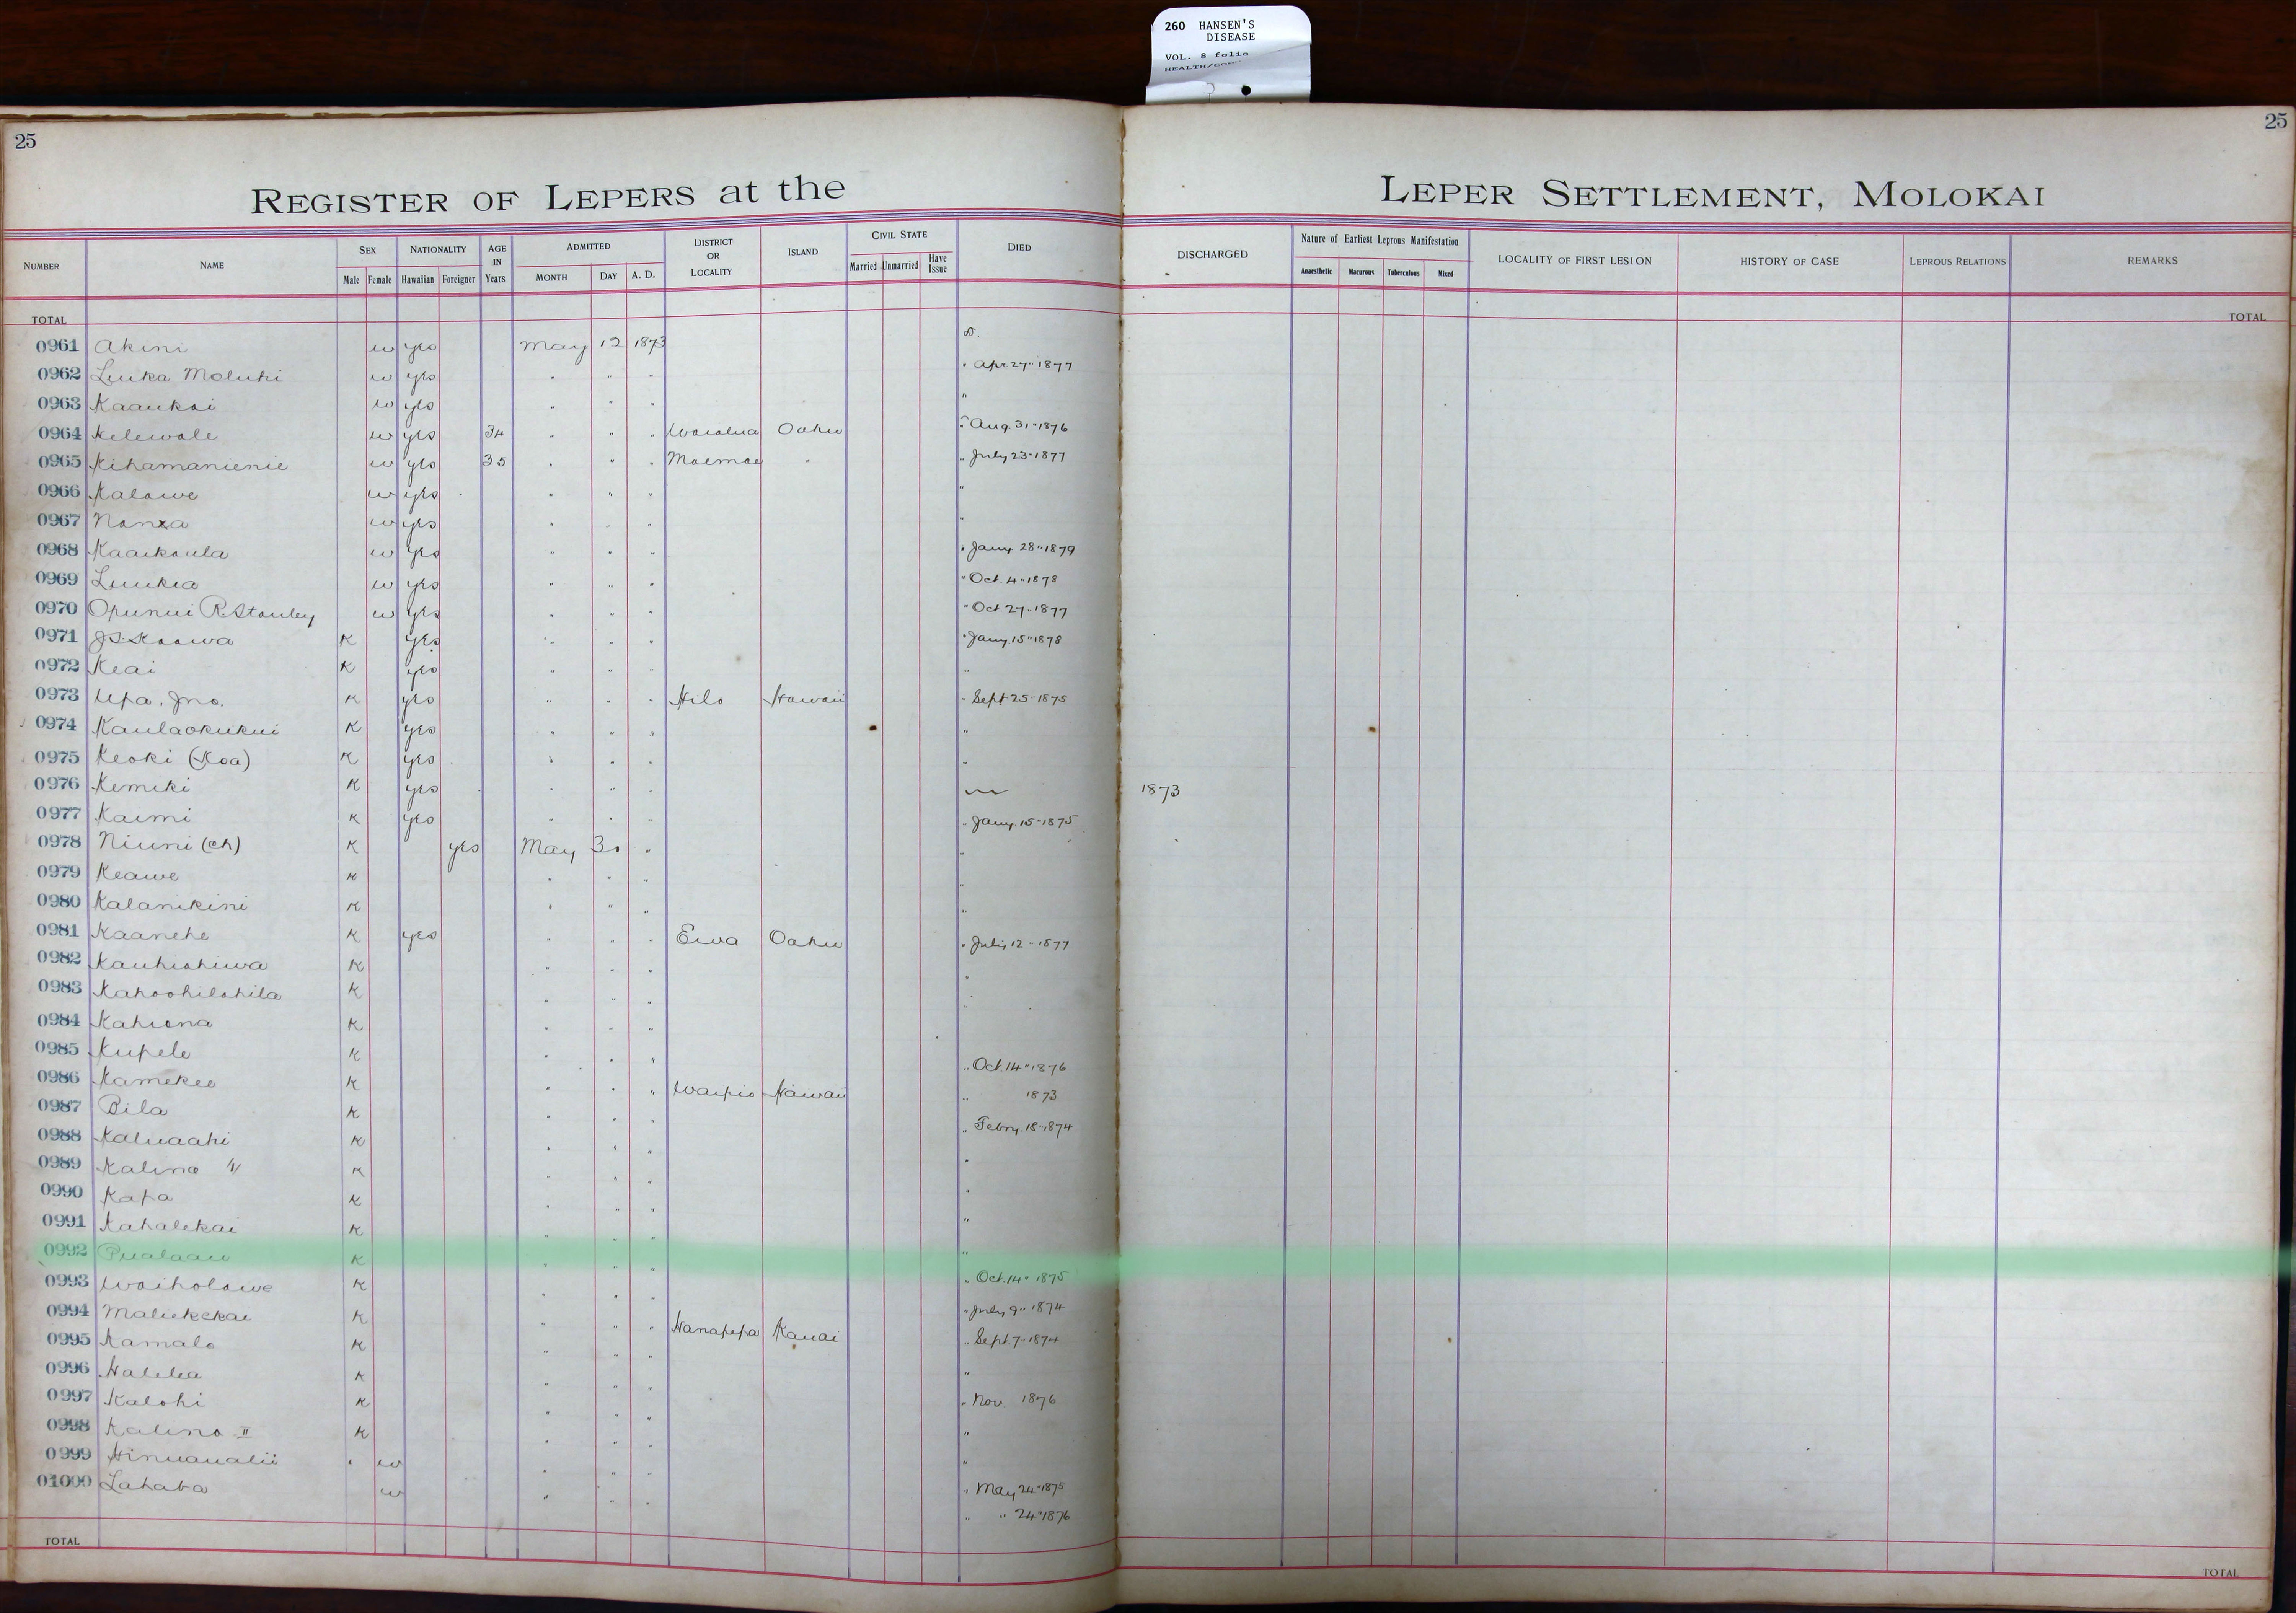 260 HANSEN'S
DISEASE
VOL. 8 folio
25
25
REGISTER OF LEPERS at the LEPER SETTLEMENT, MOLOKAI
NUMBER NAME SEX Male Female NATIONALITY Hawaiian Foreigner AGE IN Years ADMITTED MONTH DAY A. D. DISTRICT OR LOCALITY ISLAND CIVIL STATE Married Unmarried Have Issue DIED DISCHARGED Nature of Earliest Leprous Manifestation Anaesthetic Macurous Tuberculous Mixed LOCALITY OF FIRST LESION HISTORY OF CASE LEPROUS RELATIONS REMARKS
TOTAL TOTAL
0961 Akini w yes May 12 1873 D.
0962 Luka Moluhi w yes " " " " Apr. 27" 1877
0963 Kaaukai w yes " " " "
0964 Kelewale w yes 34 " " " Waialua Oahu " Aug. 31" 1876
0965 Kihamanienie w yes 35 " " " Moemoe " " July 23" 1877
0966 Kalawe w yes " " " "
0967 w yes " " " "
0968 Kaaikaula w yes " " " " Jany 28" 1879
0969 Luukia w yes " " " " Oct. 4" 1878
0970 Opunui R. Stanley w yes " " " " Oct 27" 1877
0971 J.S. Kaawa K yes " " " " Jany. 15" 1878
0972 Keai K yes " " " "
0973 Upa, Jno. K yes " " " Hilo Hawaii " Sept 25" 1875
0974 Kaulaokukui K yes " " " "
0975 Keoki (Koa) K yes " " " "
0976 Kemiki K yes " " " 1873
0977 Kaimi K yes " " " " Jany. 15" 1875
0978 Niuni (Ch) K yes May 30 " "
0979 Keawe K " " " "
0980 Kalanikini K " " " "
0981 Kaanehe K yes " " " Ewa Oahu " July 12" 1877
0982 Kauhiahiwa K " " " "
0983 Kahoohilahila K " " " "
0984 Kahiona K " " "
0985 Kupele K " " " " Oct. 14" 1876
0986 Kamekeo K " " " Waipio Hawaii " 1873
0987 Bila K " " " " Febry. 18" 1874
0988 Kaluaahi K " " " "
0989 Kalino K " " " "
0990 Kapa K " " " "
0991 Kahalekai K " " " "
0992 Pualaau K " " " " Oct. 14" 1875
0993 Waiholawe K " " " " July 9" 1874
0994 Maliekekai K " " " Hanapepe Kauai " Sept. 7" 1874
0995 Kamalo K " " " "
0996 Halelea K " " " " Nov. 1876
0997 Kalohi K " " " "
0998 Kalino II K " " " "
0999 Hinuaualii w " " " " May 24" 1875
01000 Lahaba w " " " " " 24" 1876
TOTAL TOTAL